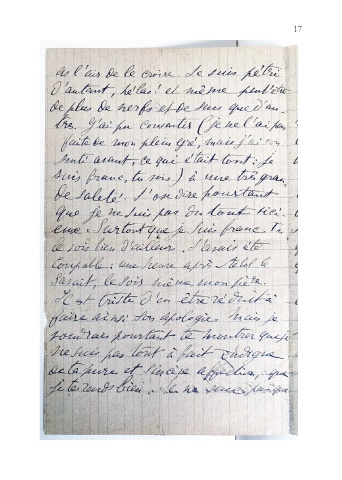 17
as l'air de le croire. Je suis pétri
d'autant, hélas! et même peut-être
de plus de nerfs et de sens que d'au-
tres. J'ai pu consentir (je ne l'ai pas
faite de mon plein gré, mais j'ai con-
senti avant, ce qui était tout: je
suis franc, tu vois) à une très gran-
de saleté. J'ose dire pourtant
que je ne suis pas du tout vici-
eux. Surtout que je suis franc, tu
le vois bien d'ailleurs. J'avais été
coupable: une heure après le
savait, le soir même mon père.
Il est triste d'en être réduit à
faire ainsi son apologie mais je
voudrais pourtant te montrer que je
ne suis pas tout à fait indigne
de la pure et sincère affection que
je te rends bien. Je ne